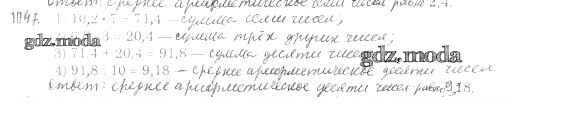 Ответ: среднее арифметическое семи чисел равно 2,4.
1147. 1) 10,2 · 7 = 71,4 – сумма семи чисел;
gdz.moda
3 = 20,4 – сумма трёх других чисел;
3) 71,4 + 20,4 = 91,8 – сумма десяти чисел
gdz.moda
4) 91,8 : 10 = 9,18 – среднее арифметическое десяти чисел
Ответ: среднее арифметическое десяти чисел равно 9,18.